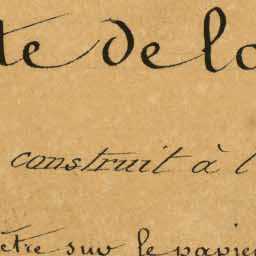 te de la
construit à l
être sur le papier